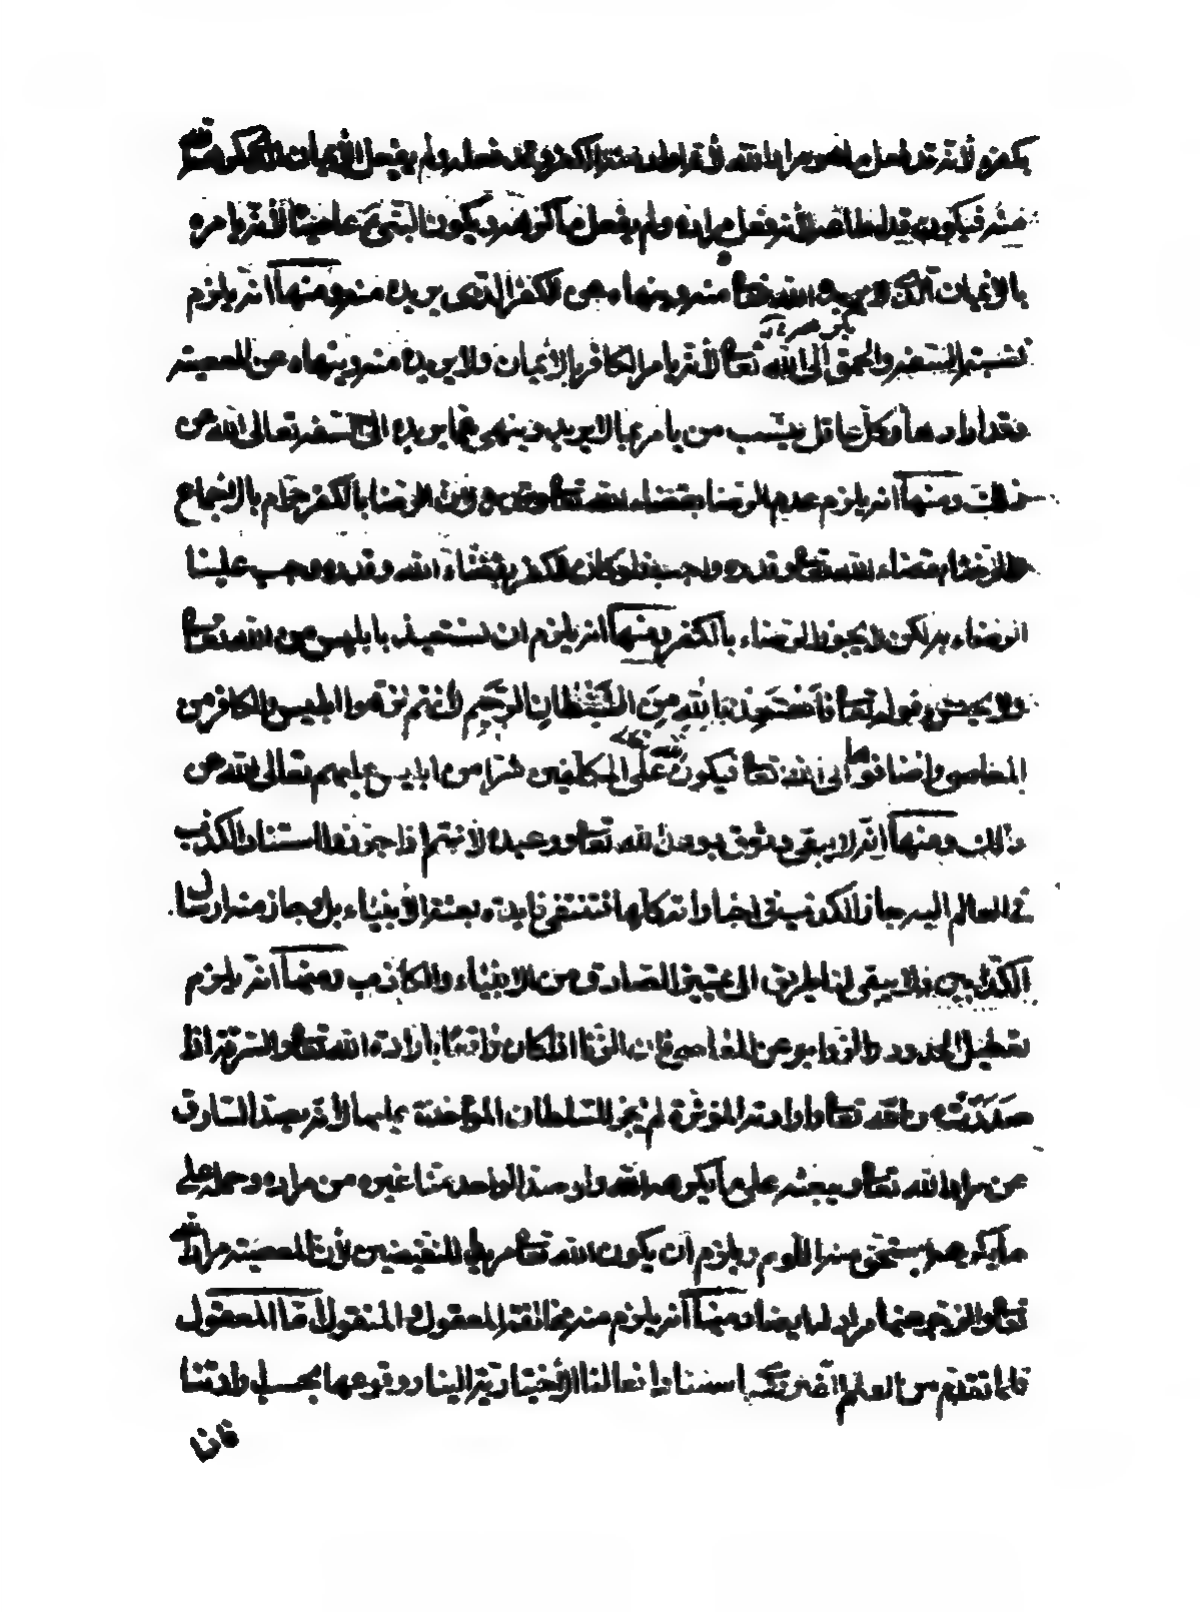 بكفره لأنه قد فعل ما هو مراد الله لأنه اراد منه الكفر وقد فعله ولم يفعل الأيمان الذى يكرهه الله
منه فيكون قد اطاعه لأنه فعل مراده ولم يفعل ما كرهه ويكون النبى عاصيًا لأنه يامره
بالايمان الذى لا يريده الله تعا منه وينهاه عن الكفر الذى يريده منه ومنها انه يلزم
نسبة السفه والحمق الى الله تعا لأنه يامر الكافر بالأيمان ولا يريده منه وينهاه عن المعصية
وقد ارادها وكل عاقل ينسب من يامر بما لا يريد وينهى عما يريده الى السفه تعالى الله عن
ذلك ومنها انه يلزم عدم الرضا بقضاء الله تعا وقدره لان الرضا بالكفر حرام بالاجماع
والرضا بقضاء الله تعا وقدره واجب فلو كان الكفر بقضاء الله وقدره وجب علينا
الرضاء به لكن لا يجوز الرضاء بالكفر ومنها انه يلزم ان نستعيذ بابليس من الله تعا
ولا يحسن قوله تعا فَاسْتَعِذْ بِاللهِ مِنَ الشَّيْطَانِ الرَّجِيم لأنهم نزهوا ابليس والكافر من
المعاصى واضافوها الى الله تعا فيكون الله تعا على المكلفين شرا من ابليس عليهم تعالى الله عن
ذلك ومنها انه لا يبقى وثوق بوعد الله تعا ووعيده لأنهم اذا جوزوا استناد الكذب
فى العالم اليه جاز الكذب فى اخباراته كلها فتنتفى فايدة بعثة الأنبياء بل وجاز منه ارسال
الكذابين فلا يبقى لنا طريق الى تمييز الصادق من الانبياء والكاذب ومنها انه يلزم
تعطيل الحدود والزواجر عن المعاصى فان الزنا اذا كان واقعًا بارادة الله تعا والسرقة اذا
صَدَرَتْ من الله تعا وارادته المؤثرة لم يجز للسلطان المؤاخذة عليها لأنه يصد السارق
عن مراد الله تعا ويبعثه على ما يكرهه الله ولو صد الواحد منا غيره من مراده وحمله على
ما يكرهه استحق منه اللوم ويلزم ان يكون الله تعا مريدا للنقيضين لأن المعصية مراد الله
تعا والزجر عنها مراد له ايضا ومنها انه يلزم منه مخالفة المعقول والمنقول أما المعقول
فلما تقدم من العلم الضرورى باستناد افعالنا الأختيارية الينا ووقوعها بحسب ارادتنا
فاذا